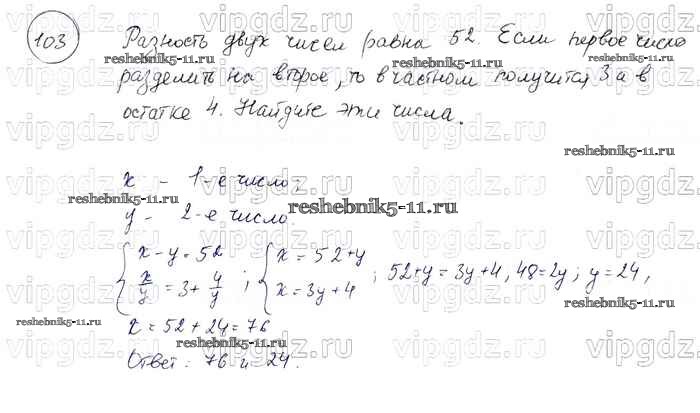 103 Разность двух чисел равна 52. Если первое число
разделить на второе, то в частном получится 3 а в
остатке 4. Найдите эти числа.
x - 1-е число;
y - 2-е число.
{ x-y=52 ; x/y = 3+ 4/y ; { x=52+y ; x=3y+4 ; 52+y=3y+4, 48=2y; y=24,
x=52+24=76
Ответ: 76 и 24.
reshebnik5-11.ru
vipgdz.ru